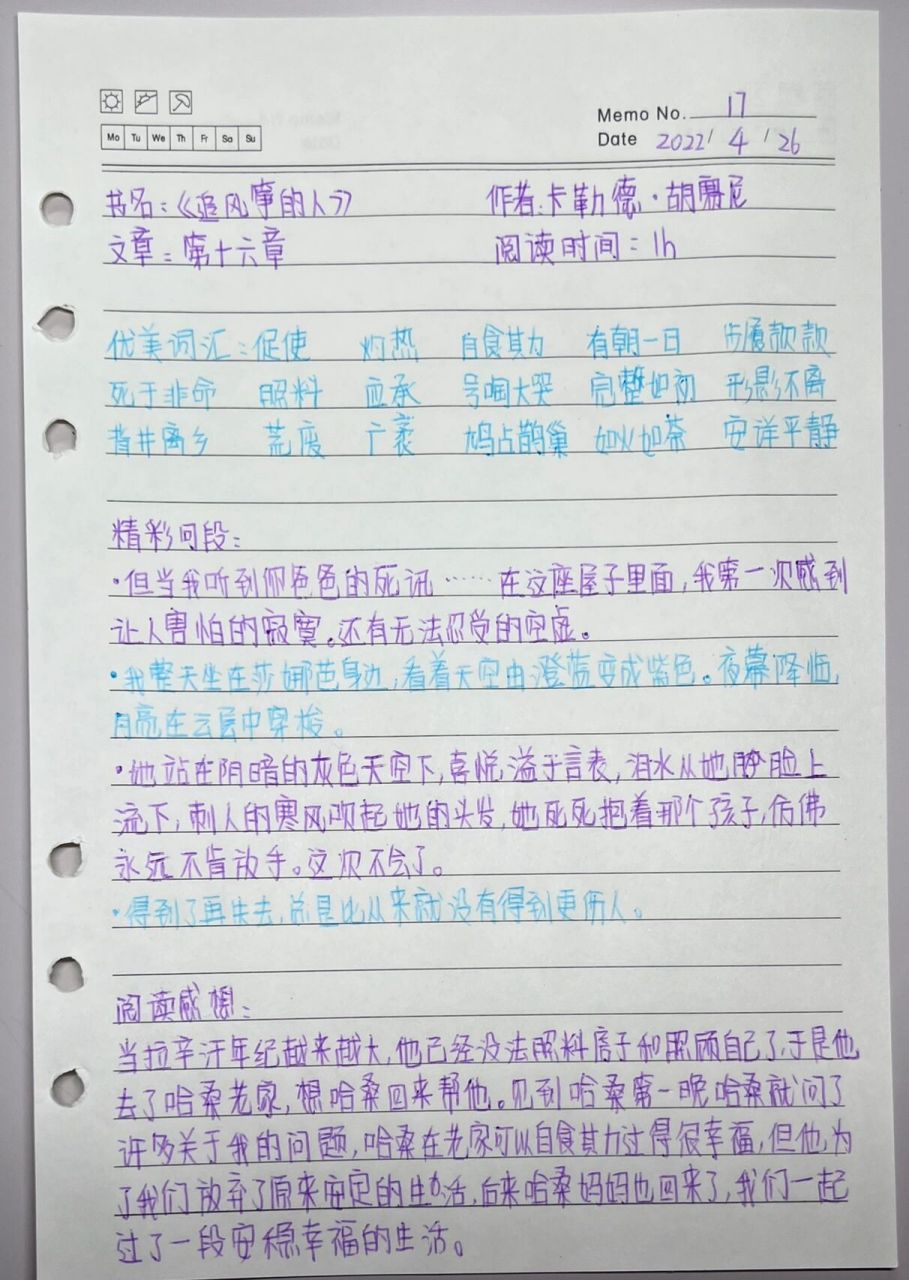 Memo No. 17
Mo Tu We Th Fr Sa Su
Date 2022/ 4 / 26
书名:《追风筝的人》 作者:卡勒德·胡赛尼
文章:第十六章 阅读时间:1h
优美词汇:促使 灼热 自食其力 有朝一日 步履款款
死于非命 照料 应承 号啕大哭 完整如初 形影不离
背井离乡 荒废 广袤 鸠占鹊巢 如火如荼 安详平静
精彩句段:
·但当我听到你爸爸的死讯……在这座屋子里面,我第一次感到
让人害怕的寂寞。还有无法忍受的空虚。
·我整天坐在莎娜芭身边,看着天空由澄蓝变成紫色。夜幕降临,
月亮在云层中穿梭。
·她站在阴暗的灰色天空下,喜悦溢于言表,泪水从她脸上
流下,刺人的寒风吹起她的头发,她死死抱着那个孩子,仿佛
永远不肯放手。这次不会了。
·得到了再失去,总是比从来就没有得到更伤人。
阅读感想:
当拉辛汗年纪越来越大,他已经没法照料房子和照顾自己了,于是他
去了哈桑老家,想哈桑回来帮他。见到哈桑第一晚哈桑就问了
许多关于我的问题,哈桑在老家可以自食其力过得很幸福,但他,为
了我们放弃了原来安定的生活,后来哈桑妈妈也回来了,我们一起
过了一段安稳幸福的生活。